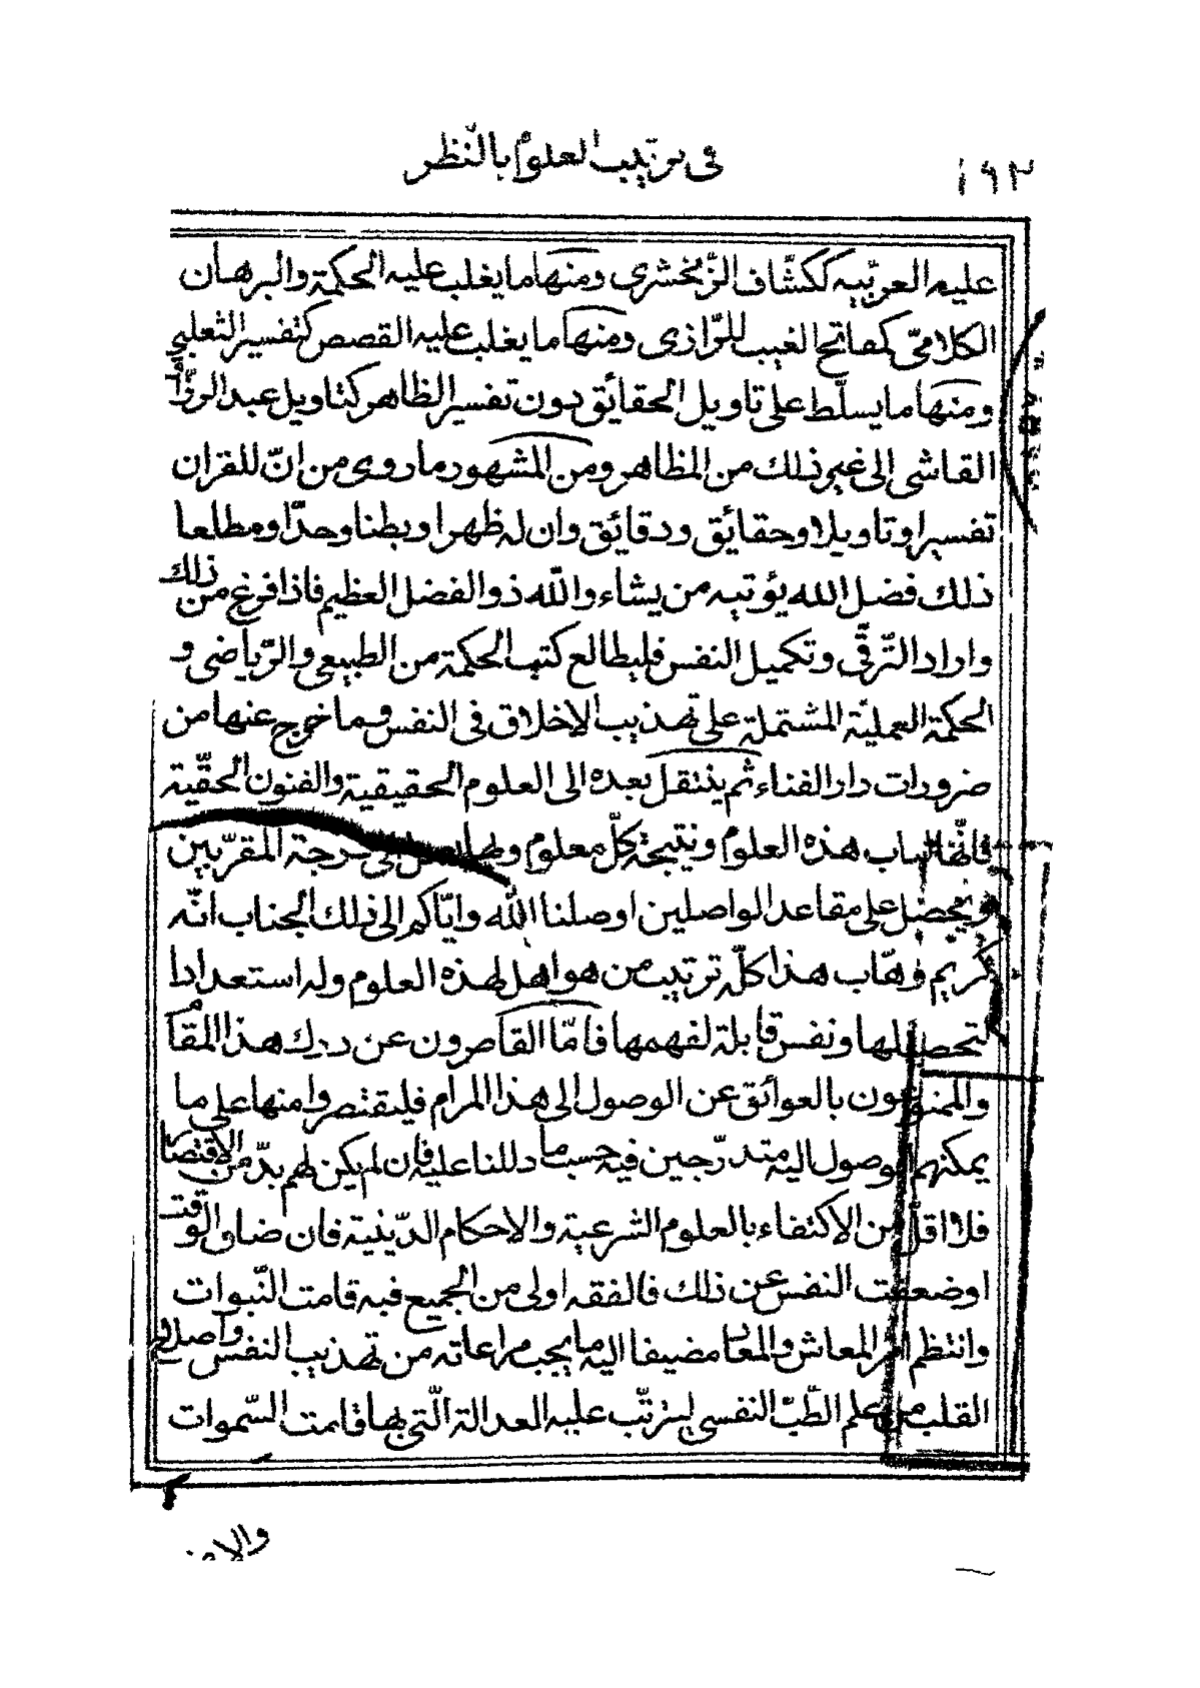 ١٩٢
فی ترتیب العلوم بالنّظر
علیه العربّیه ککشّاف الزّمخشری ومنها ما یغلب علیه الحکمة والبرهان
الکلامیّ کمفاتح الغیب للرّازی ومنها ما یغلب علیه القصص کتفسیر الثعلبی
ومنها ما یسلّط علی تاویل الحقائق دون تفسیر الظاهر کتاویل عبد الرزّاق
القاشی الی غیر ذلك من المظاهر ومن المشهور ما روی من انّ للقران
تفسیرا وتاویلا وحقائق ودقائق وان له ظهرا وبطنا وحدّا ومطلعا
ذلك فضل الله یؤتیه من یشاء والله ذو الفضل العظیم فاذا فرغ من ذلك
واراد التّرقّی وتکمیل النفس فلیطالع کتب الحکمة من الطبیعی والرّیاضی و
الحکمة العملیّة المشتملة علی تهذیب الاخلاق فی النفس وما خرج عنها من
ضرورات دار الفناء ثم ینتقل بعده الی العلوم الحقیقیة والفنون الحقّیّة
فانّها لباب هذه العلوم ونتیجة کلّ معلوم وبها یصل الی درجة المقرّبین
ویحصل علی مقاعد الواصلین اوصلنا الله وایّاکم الی ذلك الجناب انّه
کریم وهّاب هذا کلّه ترتیب من هو اهل لهذه العلوم وله استعداد
لتحصیلها ونفس قابلة لفهمها فامّا القاصرون عن درك هذا المقام
والممنوعون بالعوائق عن الوصول الی هذا المرام فلیقتصروا منها علی ما
یمکنهم الوصول الیه متدرّجین فیه حسب ما دللنا علیه فان لم یکن لهم بدّ من الاقتصار
فلا اقل من الاکتفاء بالعلوم الشرعیة والاحکام الدّینیة فان ضاق الوقت
او ضعفت النفس عن ذلك فالفقه اولی من الجمیع فبه قامت النّبوات
وانتظم امر المعاش والمعاد مضیفا الیه ما یجب مراعاته من تهذیب النفس واصلاح
القلب من علم الطّبّ النفسی لیترتّب علیه العدالة الّتی بها قامت السّموات
والارض